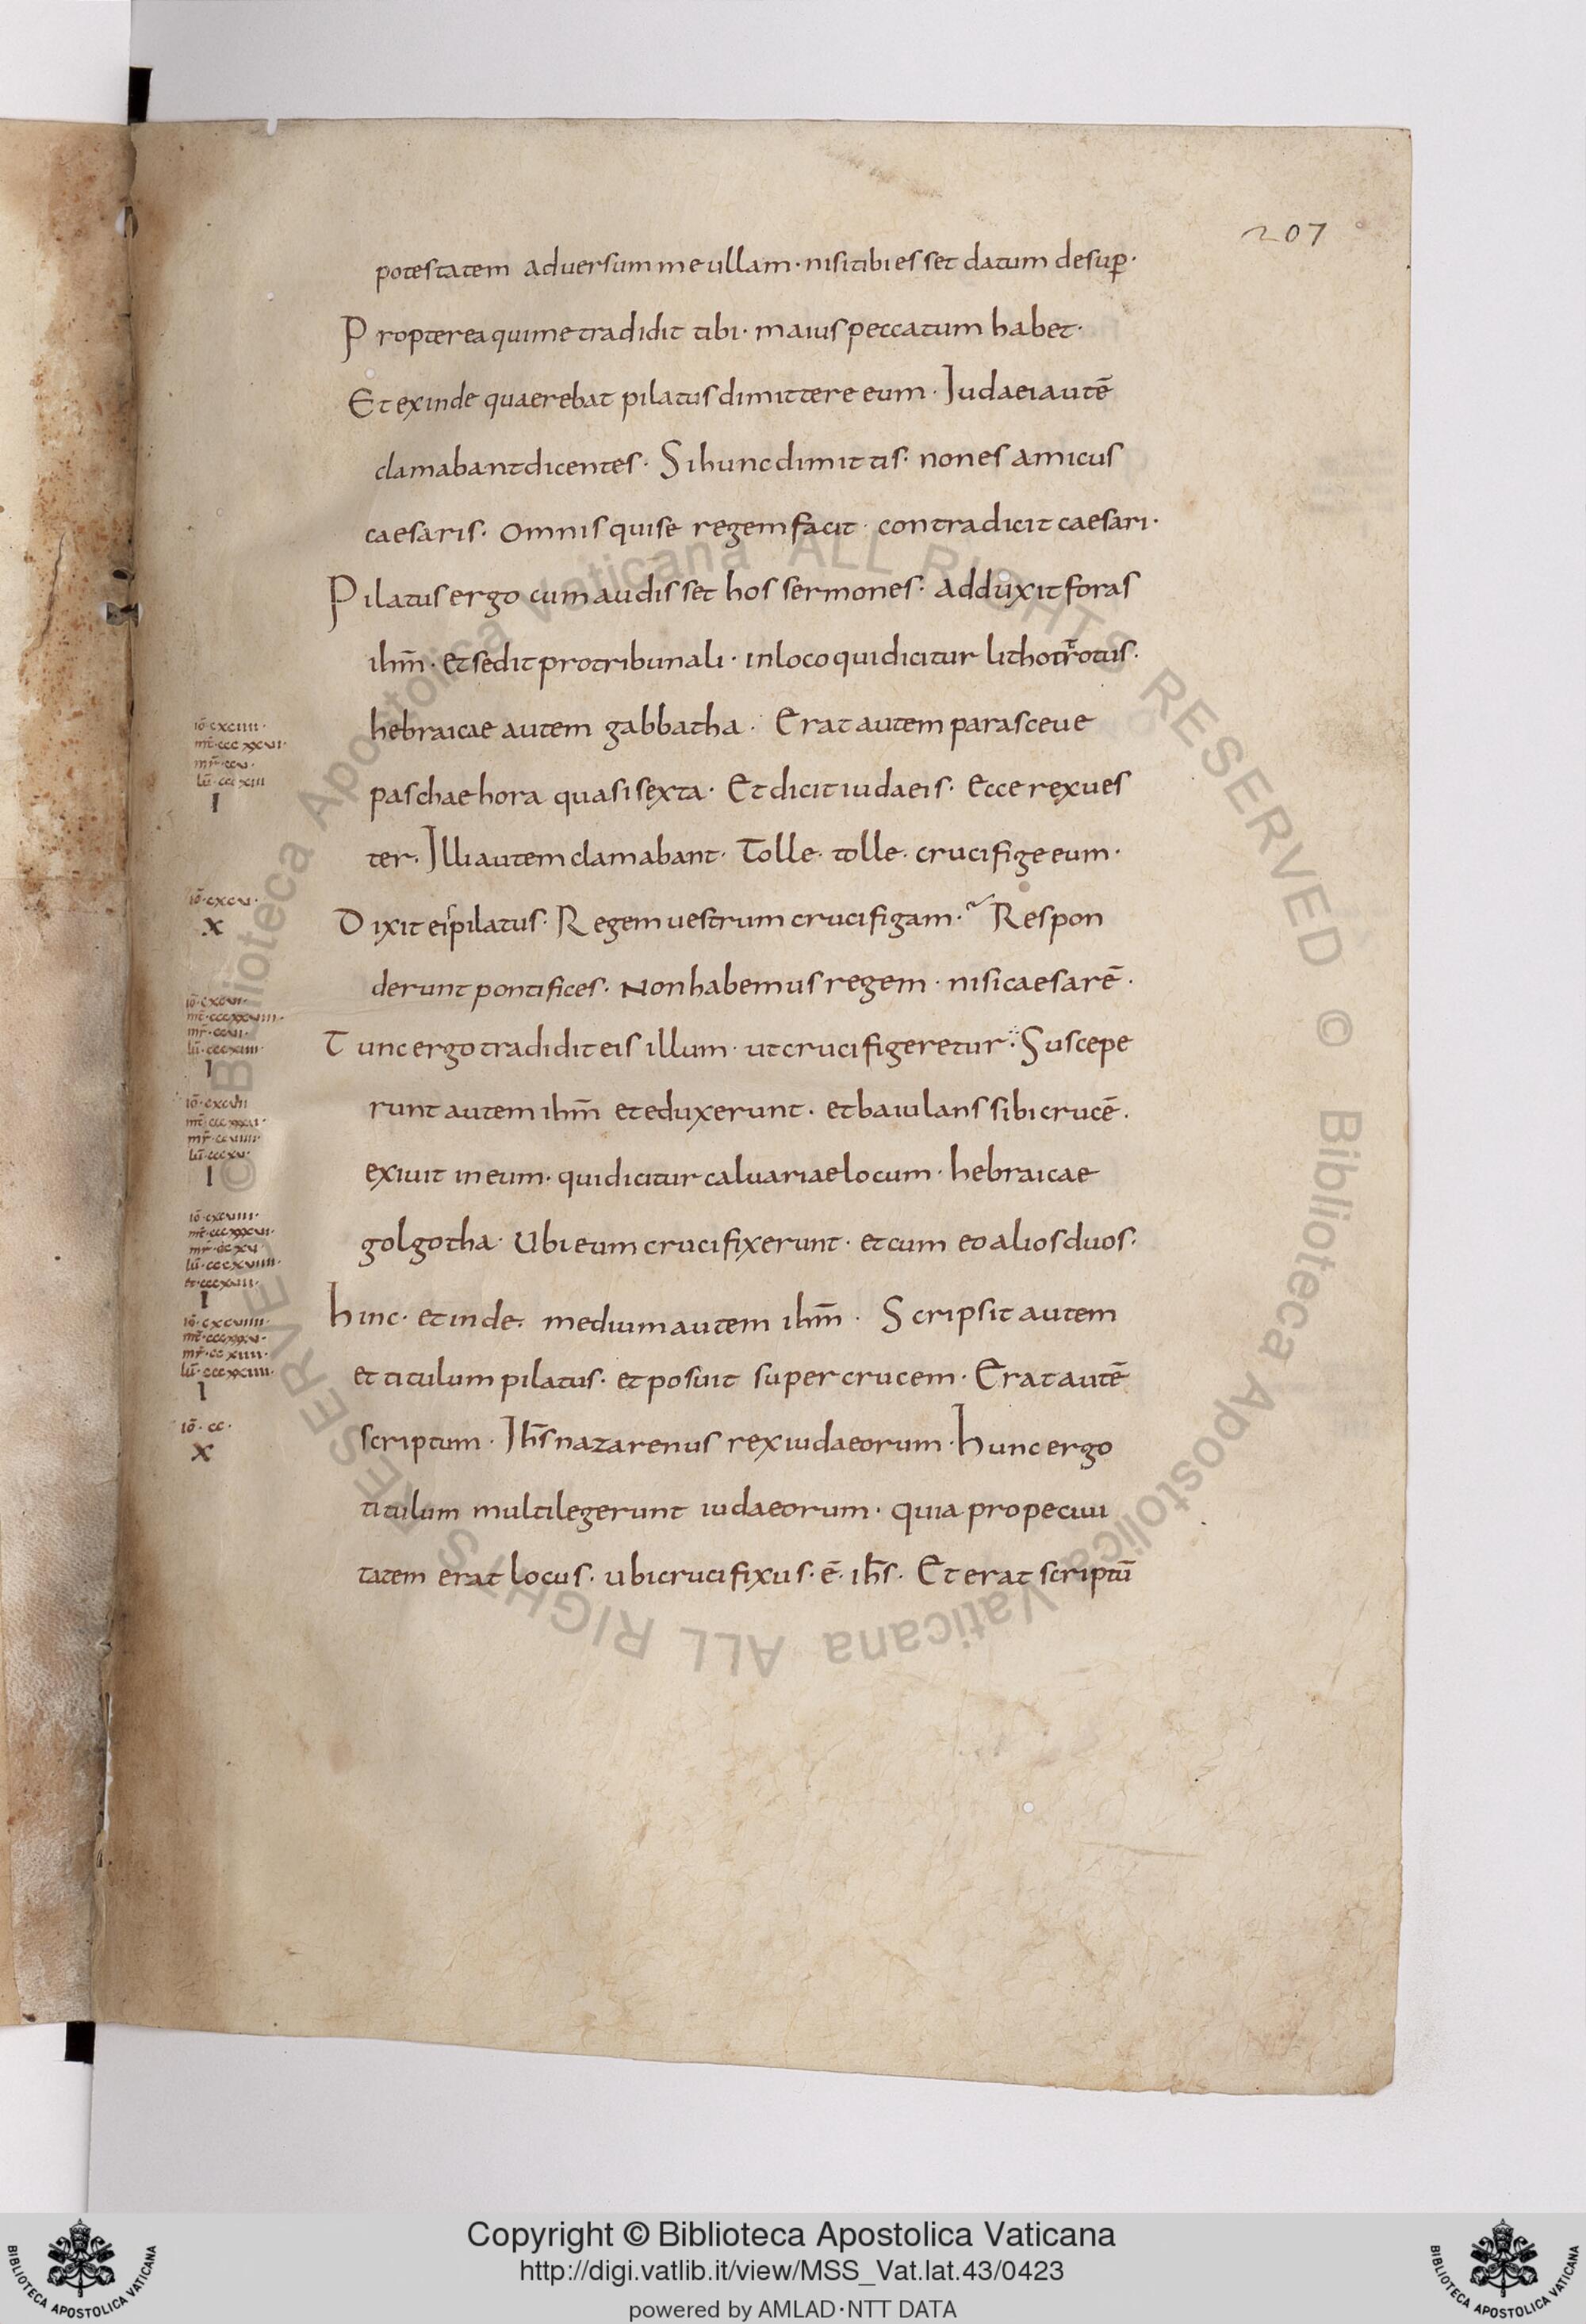 207
potestatem adversum me ullam · nisi tibi esset datum desup̄ ·
Propterea qui me tradidit tibi · maius peccatum habet ·
Et exinde quaerebat pilatus dimittere eum · Iudaei autē
clamabant dicentes · Si hunc dimittis · non es amicus
caesaris · omnis qui se regem facit · contradicit caesari ·
Pilatus ergo cum audisset hos sermones · adduxit foras
ihm̄ · et sedit pro tribunali · in loco qui dicitur lithotrotus ·
hebraicae autem gabbatha · Erat autem parasceue
paschae hora quasi sexta · Et dicit iudaeis · Ecce rex ues
ter · Illi autem clamabant · Tolle · tolle · crucifige eum ·
Dixit eis pilatus · Regem uestrum crucifigam · Respon
derunt pontifices · Non habemus regem · nisi caesarē ·
Tunc ergo tradidit eis illum · ut crucifigeretur · Suscepe
runt autem ihm̄ et eduxerunt · et baiulans sibi crucē ·
exiuit in eum · qui dicitur caluariae locum · hebraicae
golgotha · Ubi eum crucifixerunt · et cum eo alios duos ·
hinc · et inde · medium autem ihm̄ · Scripsit autem
et titulum pilatus · et posuit super crucem · Erat autē
scriptum · Ihs̄ nazarenus rex iudaeorum · hunc ergo
titulum multi legerunt iudaeorum · quia prope ciui
tatem erat locus · ubi crucifixus · ē · ihs̄ · Et erat scriptū
iō · cxciiii ·
mt̄ · cccxxvi ·
mr̄ · ccv ·
lū · cccxiii
I
iō · cxcv ·
X
iō · cxcvi ·
mt̄ · cccxxviiii ·
mr̄ · ccvii ·
lū · cccxiiii ·
I
iō · cxcvii
mr̄ · ccviiii ·
lū · cccxv ·
I
iō · cxcviii ·
mr̄ · ccxv ·
lū · cccxviiii ·
et · cccxvii ·
I
iō · cxcviiii ·
mt̄ · cccxxxv ·
mr̄ · ccxiiii ·
lū · cccxxiiii ·
I
iō · cc ·
X
© Biblioteca Apostolica Vaticana ALL RIGHTS RESERVED
© Biblioteca Apostolica Vaticana ALL RIGHTS RESERVED
Copyright © Biblioteca Apostolica Vaticana
http://digi.vatlib.it/view/MSS_Vat.lat.43/0423
powered by AMLAD·NTT DATA
BIBLIOTECA APOSTOLICA VATICANA
BIBLIOTECA APOSTOLICA VATICANA